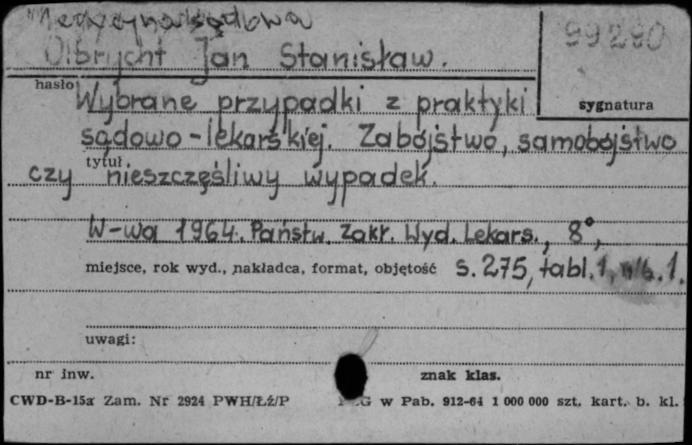 Medycyna sądowa
99290
Olbrycht Jan Stanisław.
hasło
Wybrane przypadki z praktyki
sygnatura
sądowo-lekarskiej. Zabójstwo, samobójstwo
tytuł
czy nieszczęśliwy wypadek.
W-wa 1964. Państw. Zakł. Wyd. Lekars., 8°,
miejsce, rok wyd., nakładca, format, objętość s. 275, tabl. 1, nlb. 1.
uwagi:
nr inw. znak klas.
CWD-B-15a Zam. Nr 2924 PWH/Łż/P w Pab. 912-64 1 000 000 szt. kart. b. kl.